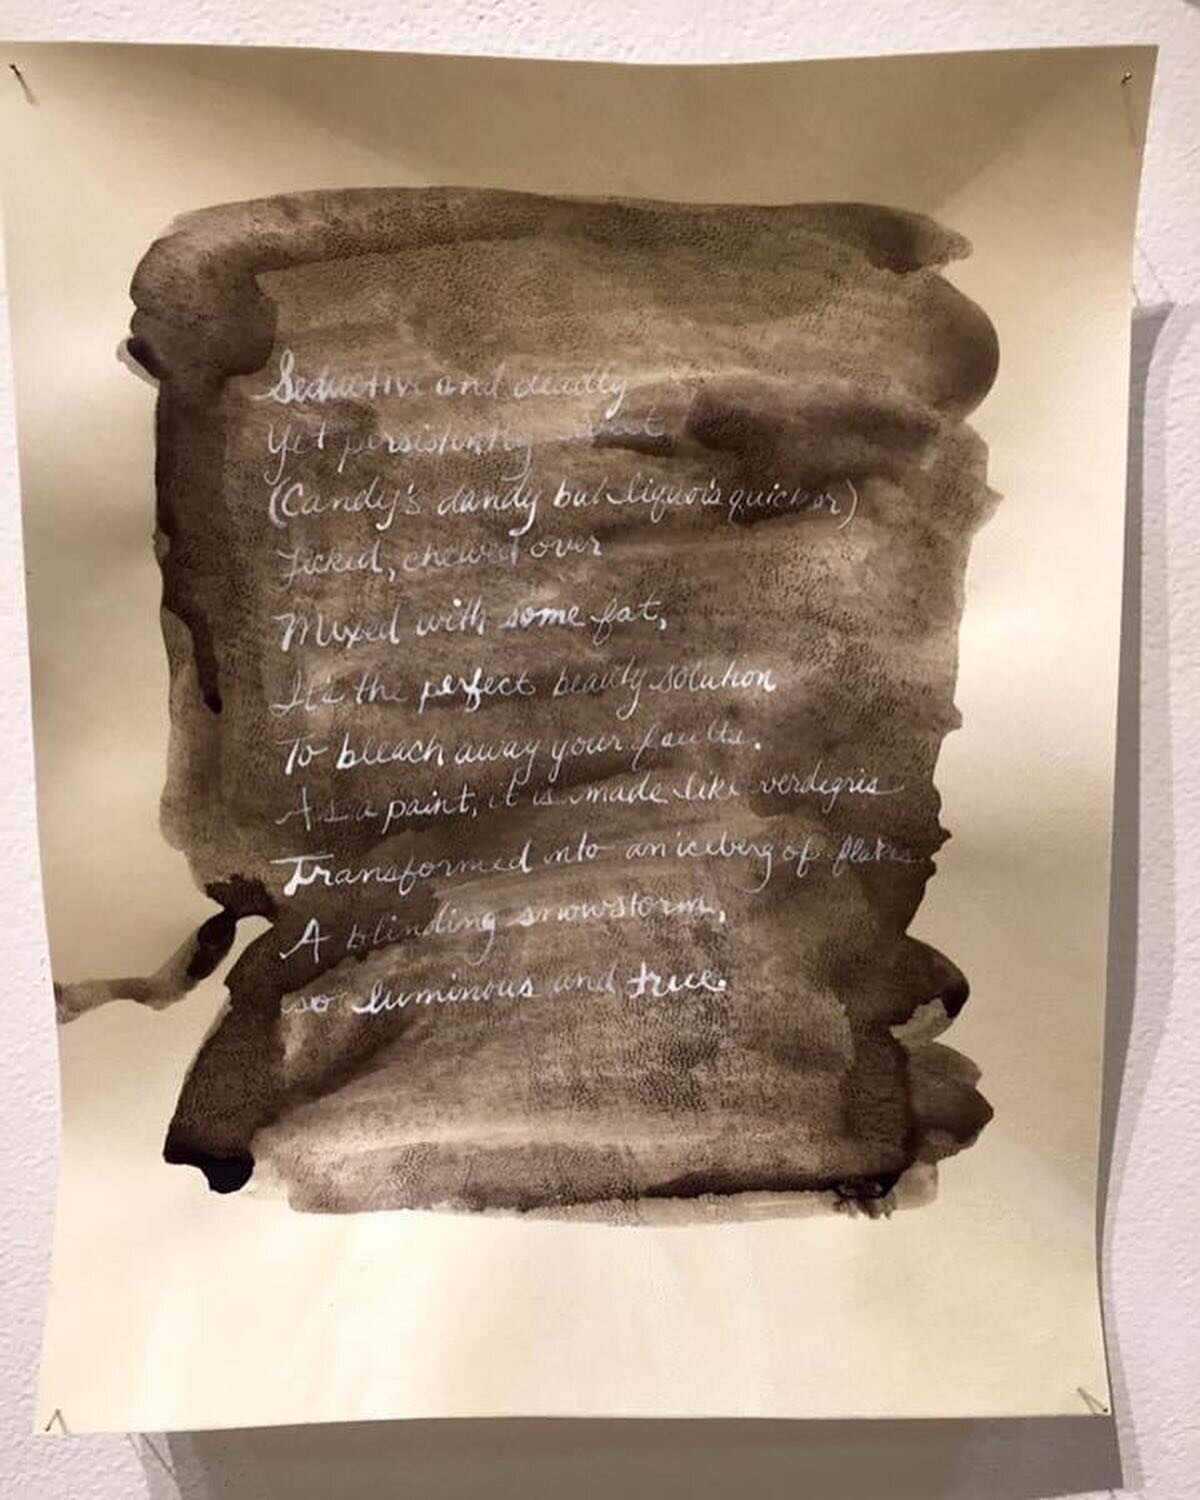 Seductive and deadly
Yet persistently
(Candy's dandy but liquor's quicker)
Licked, chewed over
Mixed with some fat,
It's the perfect beauty solution
To bleach away your faults.
As a paint, it is made like verdigris
Transformed into an iceberg of flakes
A blinding snowstorm,
so luminous and true.